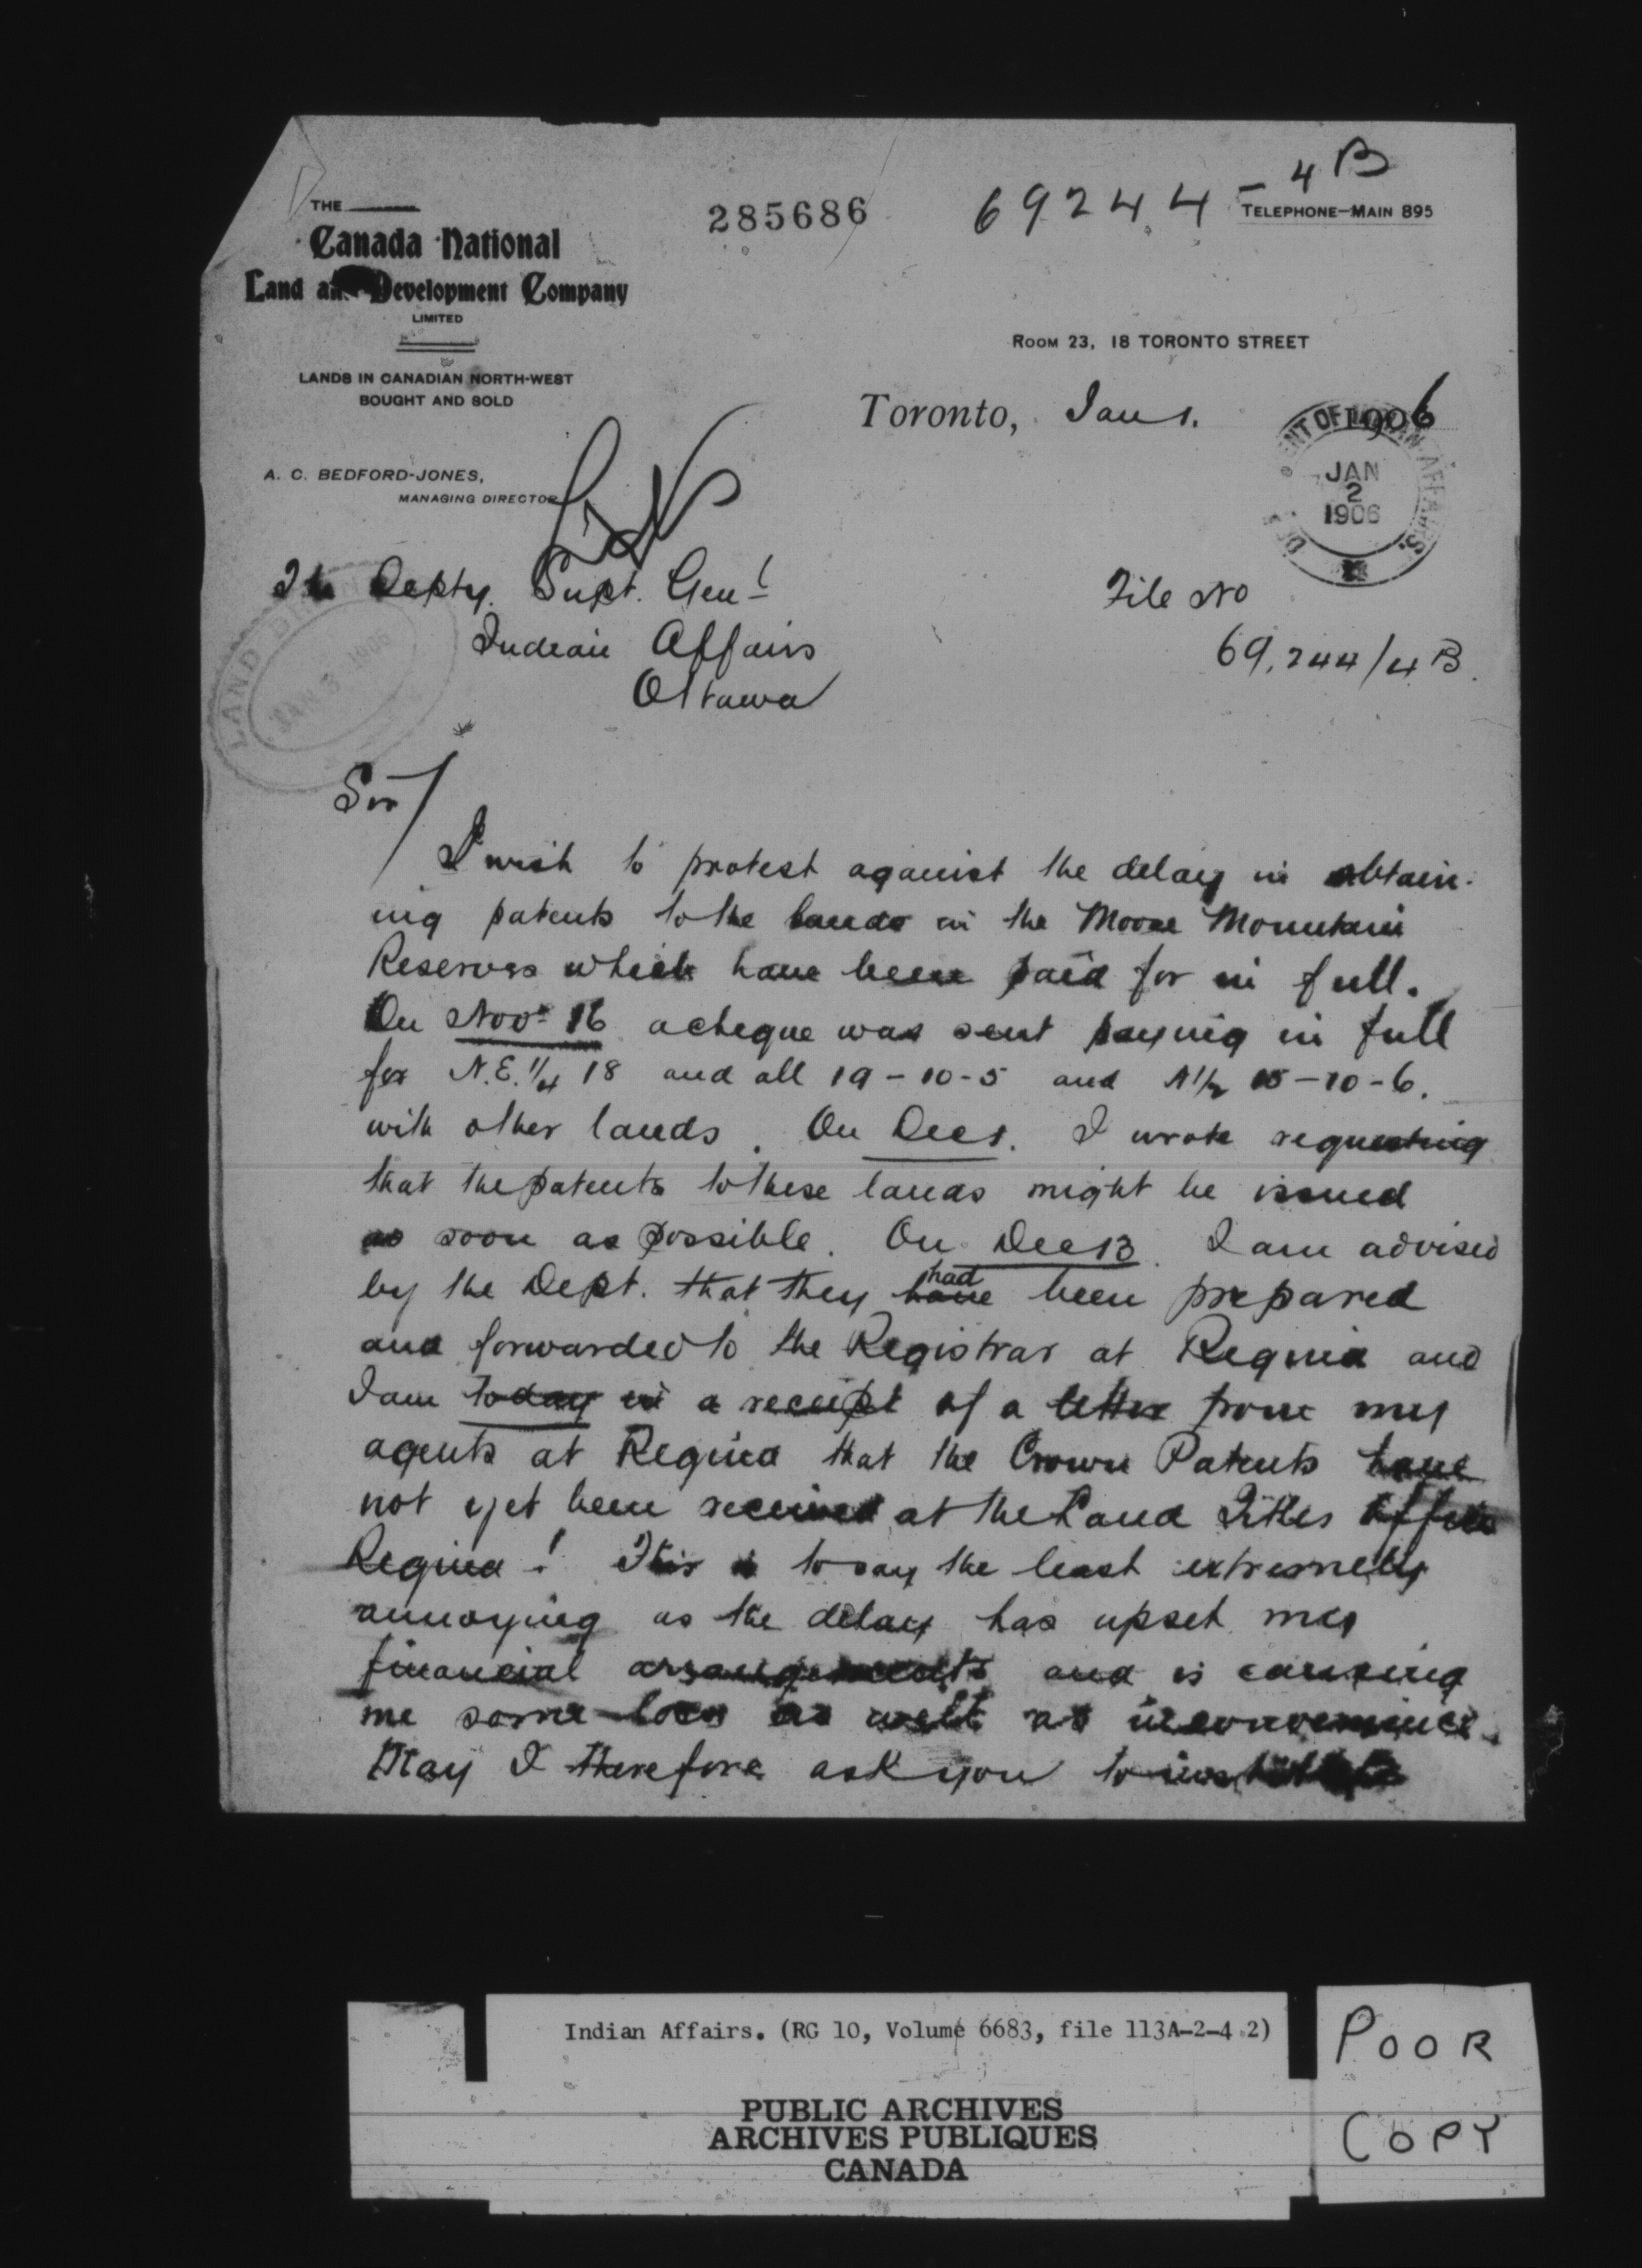 THE
Canada National
Land and Development Company
LIMITED
LANDS IN CANADIAN NORTH-WEST
BOUGHT AND SOLD
A. C. BEDFORD-JONES,
MANAGING DIRECTOR
285686
69244-4B
TELEPHONE-MAIN 895
ROOM 23, 18 TORONTO STREET
Toronto, Jan 1. 1906
JAN
2
1906
The Depty. Supt. Genl
Indian Affairs
Ottawa
File No
69,244/4B.
LAND
JAN 3 1906
Sir/
I wish to protest against the delay in obtain-
ing patents to the lands in the Moose Mountain
Reserves which have been paid for in full.
On Novr 16 a cheque was sent paying in full
for N.E. 1/4 18 and all 19-10-5 and N1/2 15-10-6.
with other lands. On Dec 1. I wrote requesting
that the patents to these lands might be issued
as soon as possible. On Dec 13. I am advised
by the Dept. that they had have been prepared
and forwarded to the Registrar at Regina and
I am today in a receipt of a letter from my
agents at Regina that the Crown Patents have
not yet been received at the Land Titles Office
Regina! This is to say the least extremely
annoying as the delay has upset my
financial arrangements and is causing
me some loss as well as inconvenience.
May I therefore ask you to
Indian Affairs. (RG 10, Volume 6683, file 113A-2-4.2)
PUBLIC ARCHIVES
ARCHIVES PUBLIQUES
CANADA
POOR
COPY